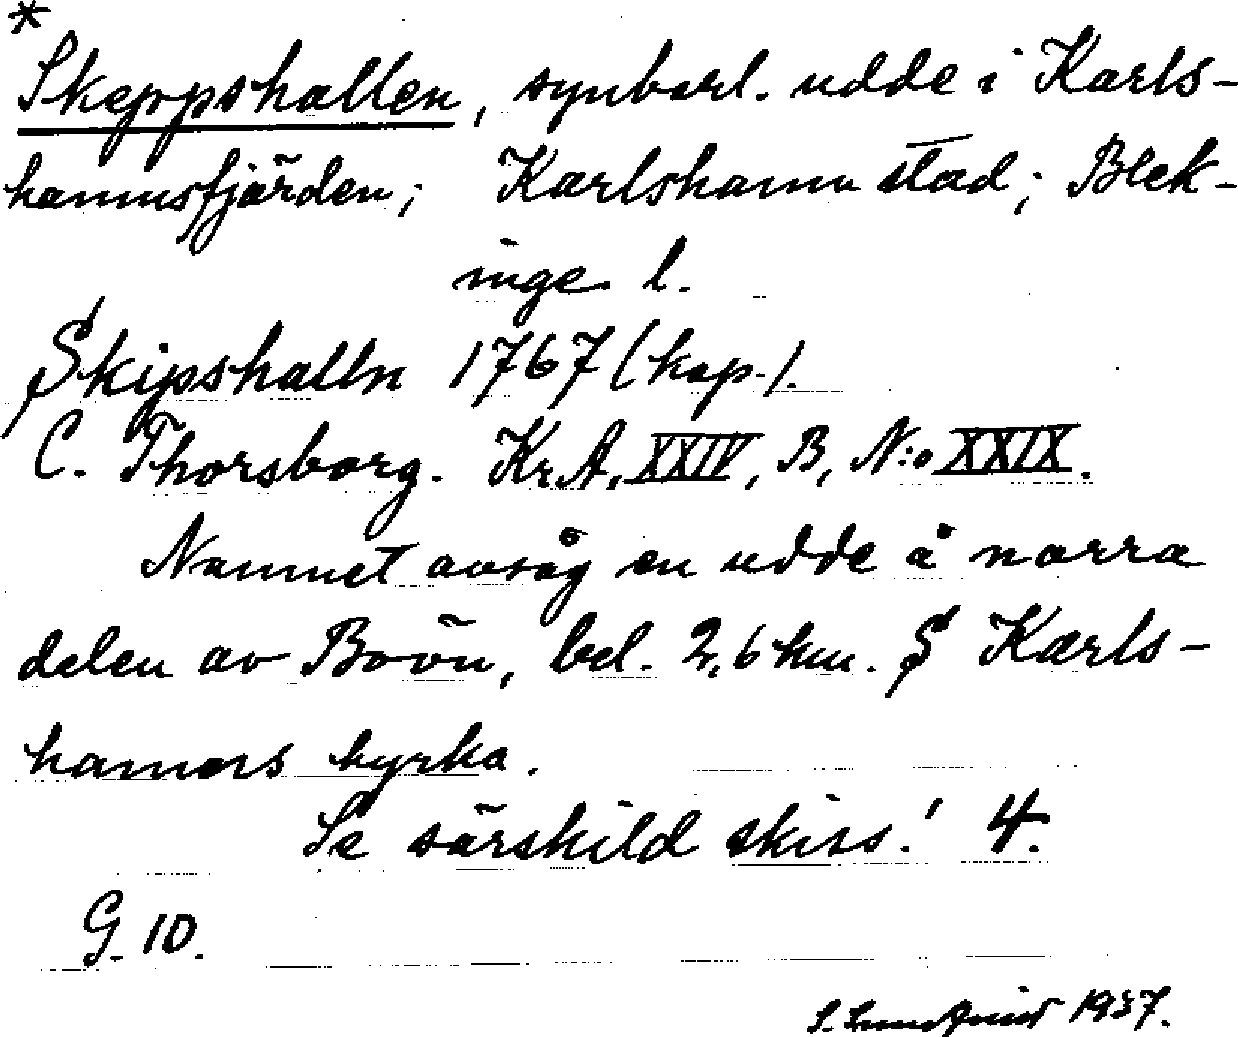 *
Skeppshallen, synbarl. udde i Karls-
hamnsfjärden; Karlshamn stad; Blek-
inge l.
Skipshalln 1767 (kop.).
C. Thorsborg. Kr.A. XXIV, B, N:o XXIX.
Namnet avsåg en udde å norra
delen av Boön, bel. 2,6 km. S Karls-
hamns kyrka.
Se särskild skiss! 4.
G. 10.
1937.